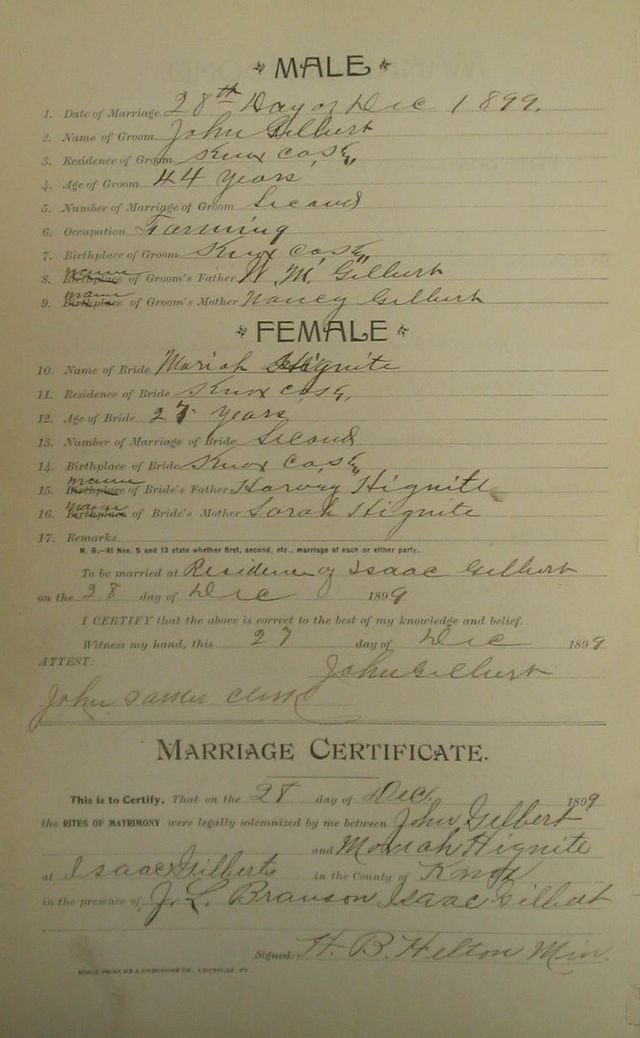 MALE
1. Date of Marriage 28th Day of Dec 1899.
2. Name of Groom John Gilbert
3. Residence of Groom Knox Co, Ky
4. Age of Groom 44 years
5. Number of Marriage of Groom Second
6. Occupation Farming
7. Birthplace of Groom Knox Co, Ky
8. Birthplace name of Groom's Father W. M. Gilbert
9. Birthplace name of Groom's Mother Nancy Gilbert
FEMALE
10. Name of Bride Moriah Hignite
11. Residence of Bride Knox Co, Ky,
12. Age of Bride 27 years
13. Number of Marriage of Bride Second
14. Birthplace of Bride Knox Co, Ky
15. Birthplace name of Bride's Father Harvey Hignite
16. Birthplace name of Bride's Mother Sarah Hignite
17. Remarks
N. B.—At Nos. 5 and 13 state whether first, second, etc., marriage of each or either party.
To be married at Residence of Isaac Gilbert
on the 28 day of Dec 1899
I CERTIFY that the above is correct to the best of my knowledge and belief.
Witness my hand, this 27 day of Dec 1899
ATTEST: John Gilbert
John Clerk
MARRIAGE CERTIFICATE.
This is to Certify, That on the 28 day of Dec. 1899
the RITES OF MATRIMONY were legally solemnized by me between John Gilbert
and Moriah Hignite
at Isaac Gilberts in the County of Knox
in the presence of J. L. Branson Isaac Gilbert
Signed: H. B. Helton Min.